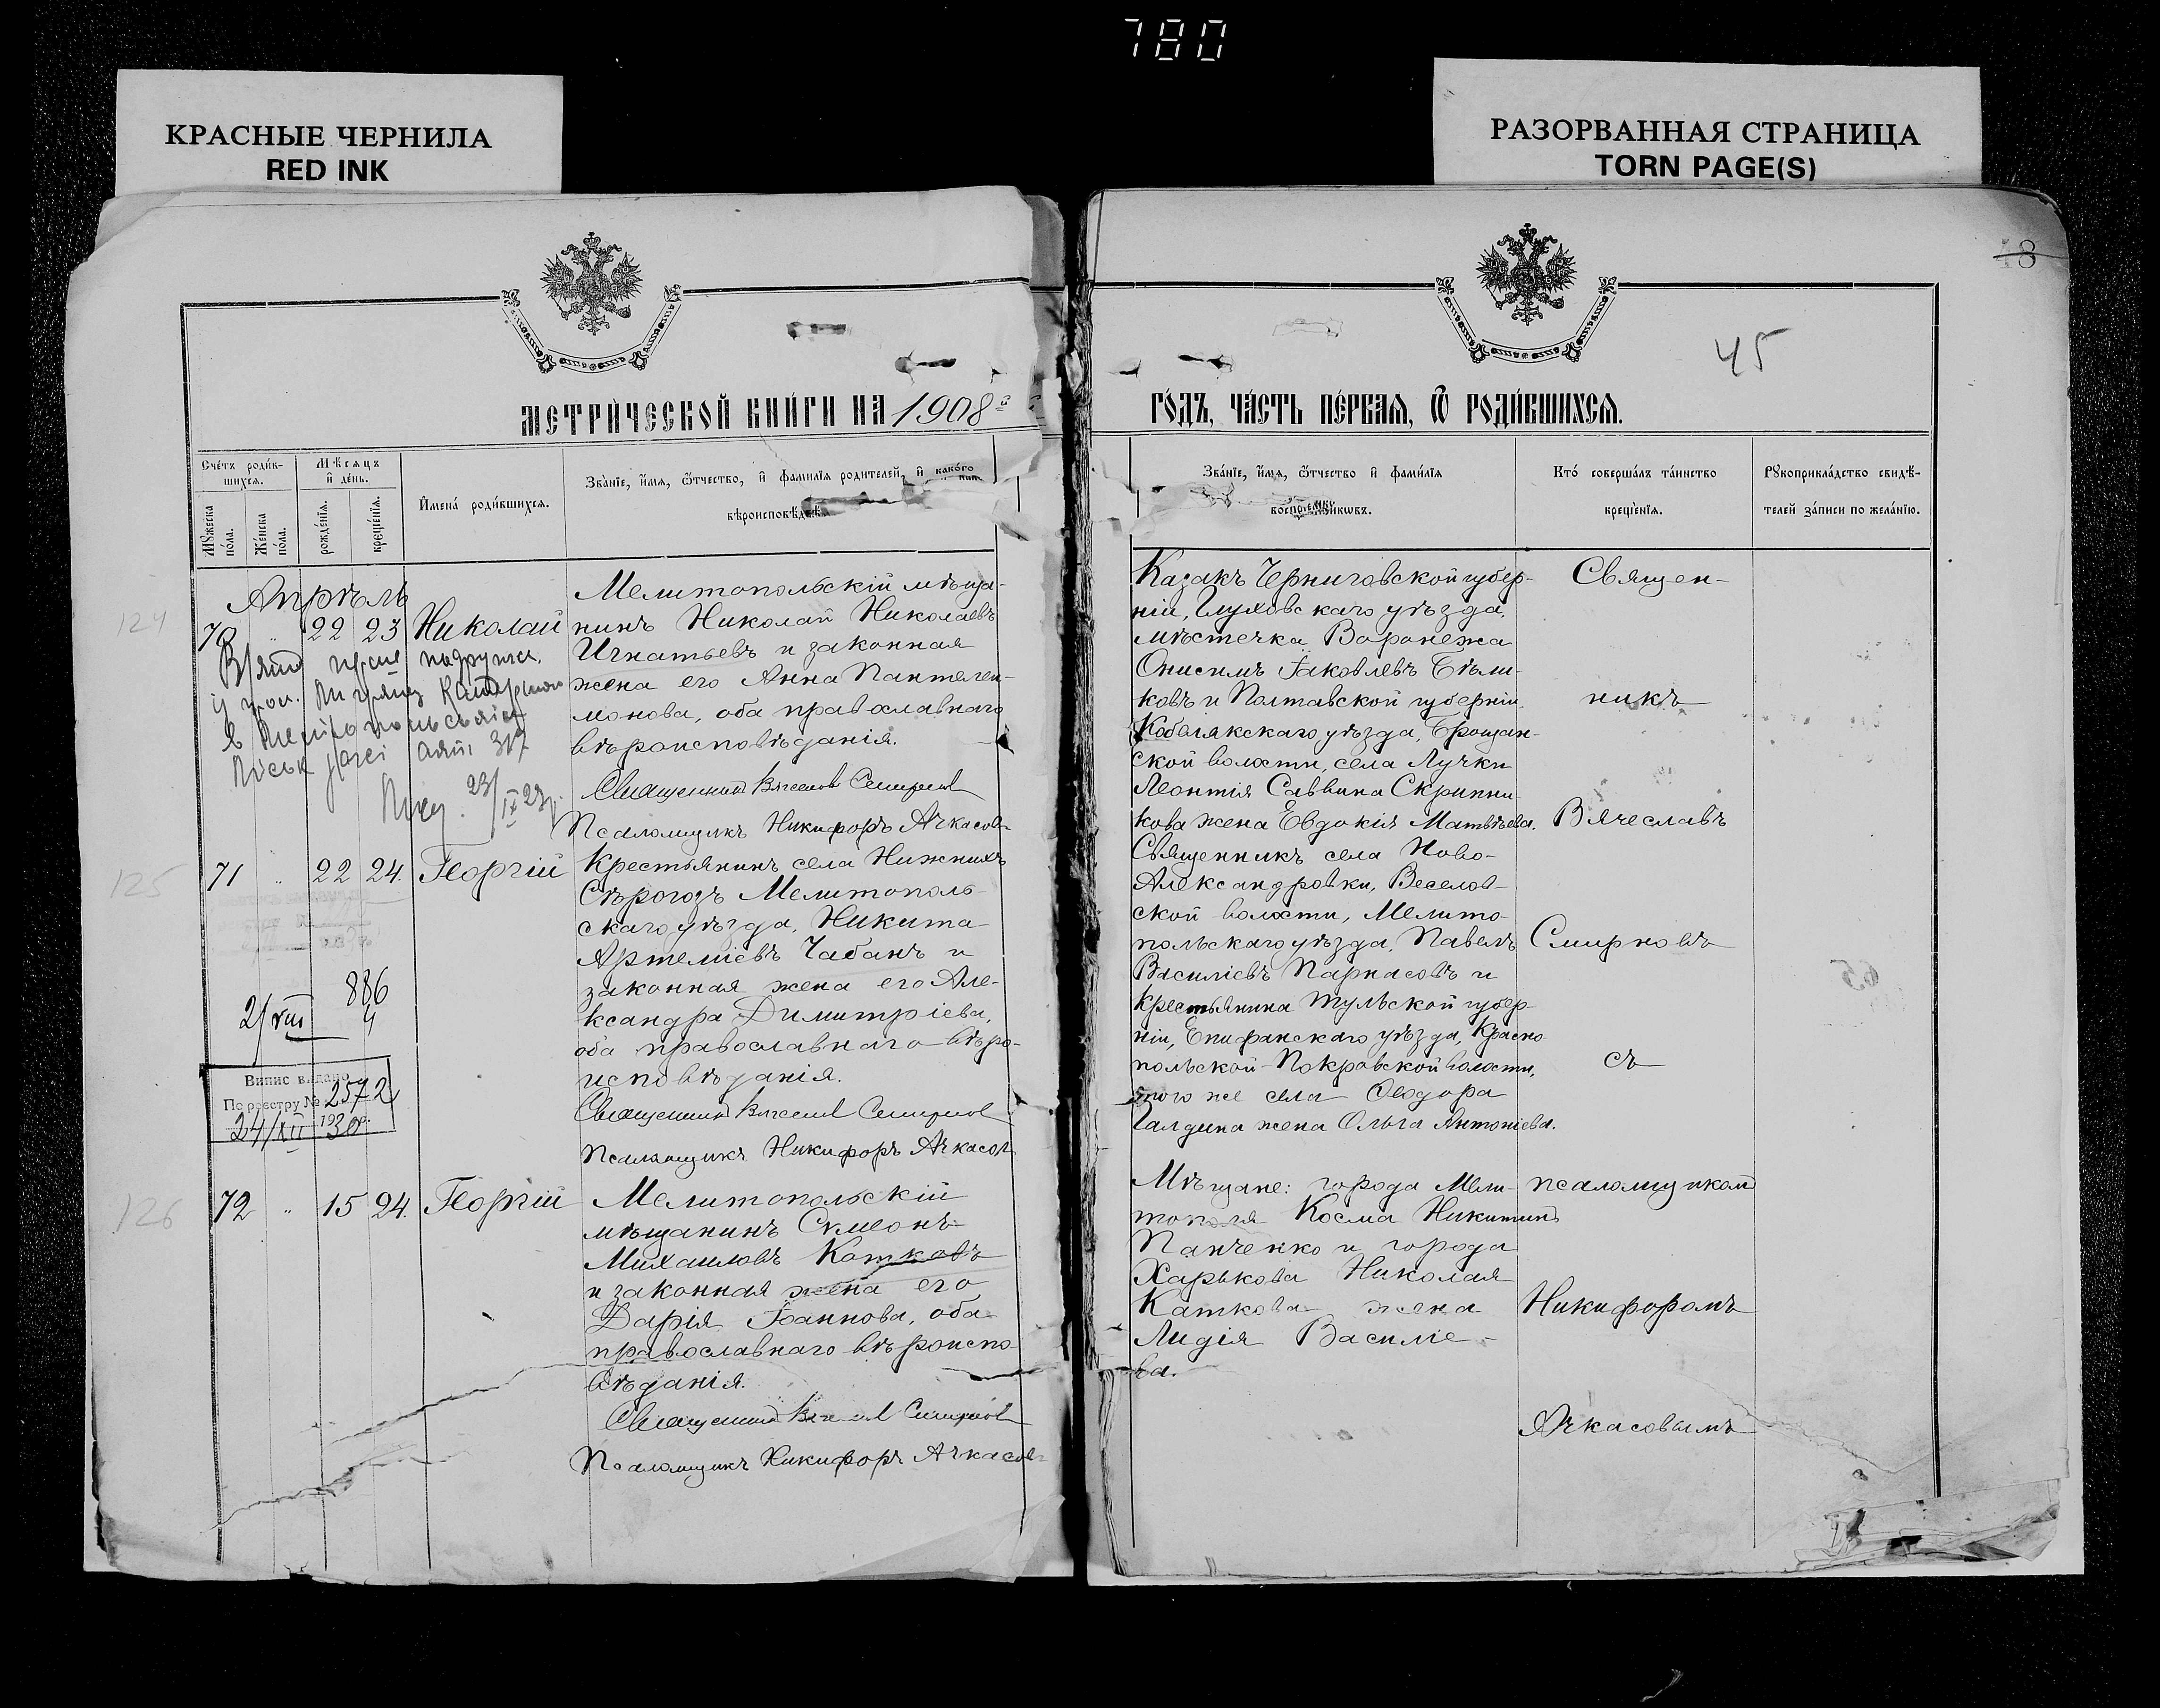 780
КРАСНЫЕ ЧЕРНИЛА
RED INK
РАЗОРВАННАЯ СТРАНИЦА
TORN PAGE(S)
18
45
МЕТРИ́ЧЕСКОЙ КНИ́ГИ НА 1908й
ГО́ДЪ, ЧА́СТЬ ПЕ́РВАЯ, Ѡ РОДИ́ВШИХСЯ.
Сче́тъ роди́в-
шихся.
Му́жеска
по́ла.
Же́нска
по́ла.
Мѣ́сяцъ
и҆ де́нь.
рожде́нїя.
креще́нїя.
И҆мена̀ роди́вшихся.
Зва́нїе, и҆́мя, ѻ҆́тчество, и҆ фами́лїя роди́телей, и҆ како́гѡ
вѣроисповѣ́д
Зва́нїе, и҆́мя, ѻ҆́тчество и҆ фами́лїя
воспрїе́мникѡвъ.
Кто́ соверша́лъ та́инство
креще́нїя.
Рꙋкоприкла́дство свидѣ́-
телей за́писи по жела́нїю.
Апрѣль
124
70 " 22 23 Николай
Мелитопольскій мѣща-
нинъ Николай Николаевъ
Игнатьевъ и законная
жена его Анна Пантелеи-
монова, оба православнаго
вѣроисповѣданія.
Священникъ Вячеслав Смирнов
Псаломщикъ Никифоръ Ачкасовъ
23/IX 29
Казакъ Черниговской губер-
ніи, Глуховскаго уѣзда,
мѣстечка Воронежа
Онисимъ Іаковлевъ Бѣли-
ковъ и Полтавской губерніи
Кобелякскаго уѣзда, Брощан-
ской волости, села Лучки
Леонтія Саввина Скрипни-
кова жена Евдокія Матвѣева.
Священ-
никъ
Вячеславъ
Смирновъ
съ
псаломщикомъ
Никифоромъ
Ачкасовымъ
125
71 " 22 24. Георгій
Крестьянинъ села Нижнихъ
Сѣрогозъ Мелитополь-
скаго уѣзда, Никита
Артеміевъ Чабанъ и
законная жена его Але-
ксандра Димитріева,
оба православнаго вѣро-
исповѣданія.
Священникъ Вячеслав Смирнов
Псаломщикъ Никифоръ Ачкасов
886
4
2/VIII
Випис видано
По реєстру № 2572
24/XII 1930 р.
Священникъ села Ново-
Александровки, Веселов-
ской волости, Мелито-
польскаго уѣзда, Павелъ
Василіевъ Парнасовъ и
крестьянина Тульской губер-
ніи, Епифанскаго уѣзда, Красно-
польской-Покровской волости,
того же села Ѳеодора
Галдина жена Ольга Антоніева.
65
126
72 " 15 24. Георгій
Мелитопольскій
мѣщанинъ Сѵмеонъ
Михаиловъ Катковъ
и законная жена его
Дарія Іоаннова, оба
православнаго вѣроиспо-
вѣданія.
Священникъ Вячеслав Смирнов
Псаломщикъ Никифоръ Ачкасовъ
Мѣщане: города Мели-
тополя Косма Никитинъ
Панченко и города
Харькова Николая
Каткова жена
Лидія Василіе-
ва.